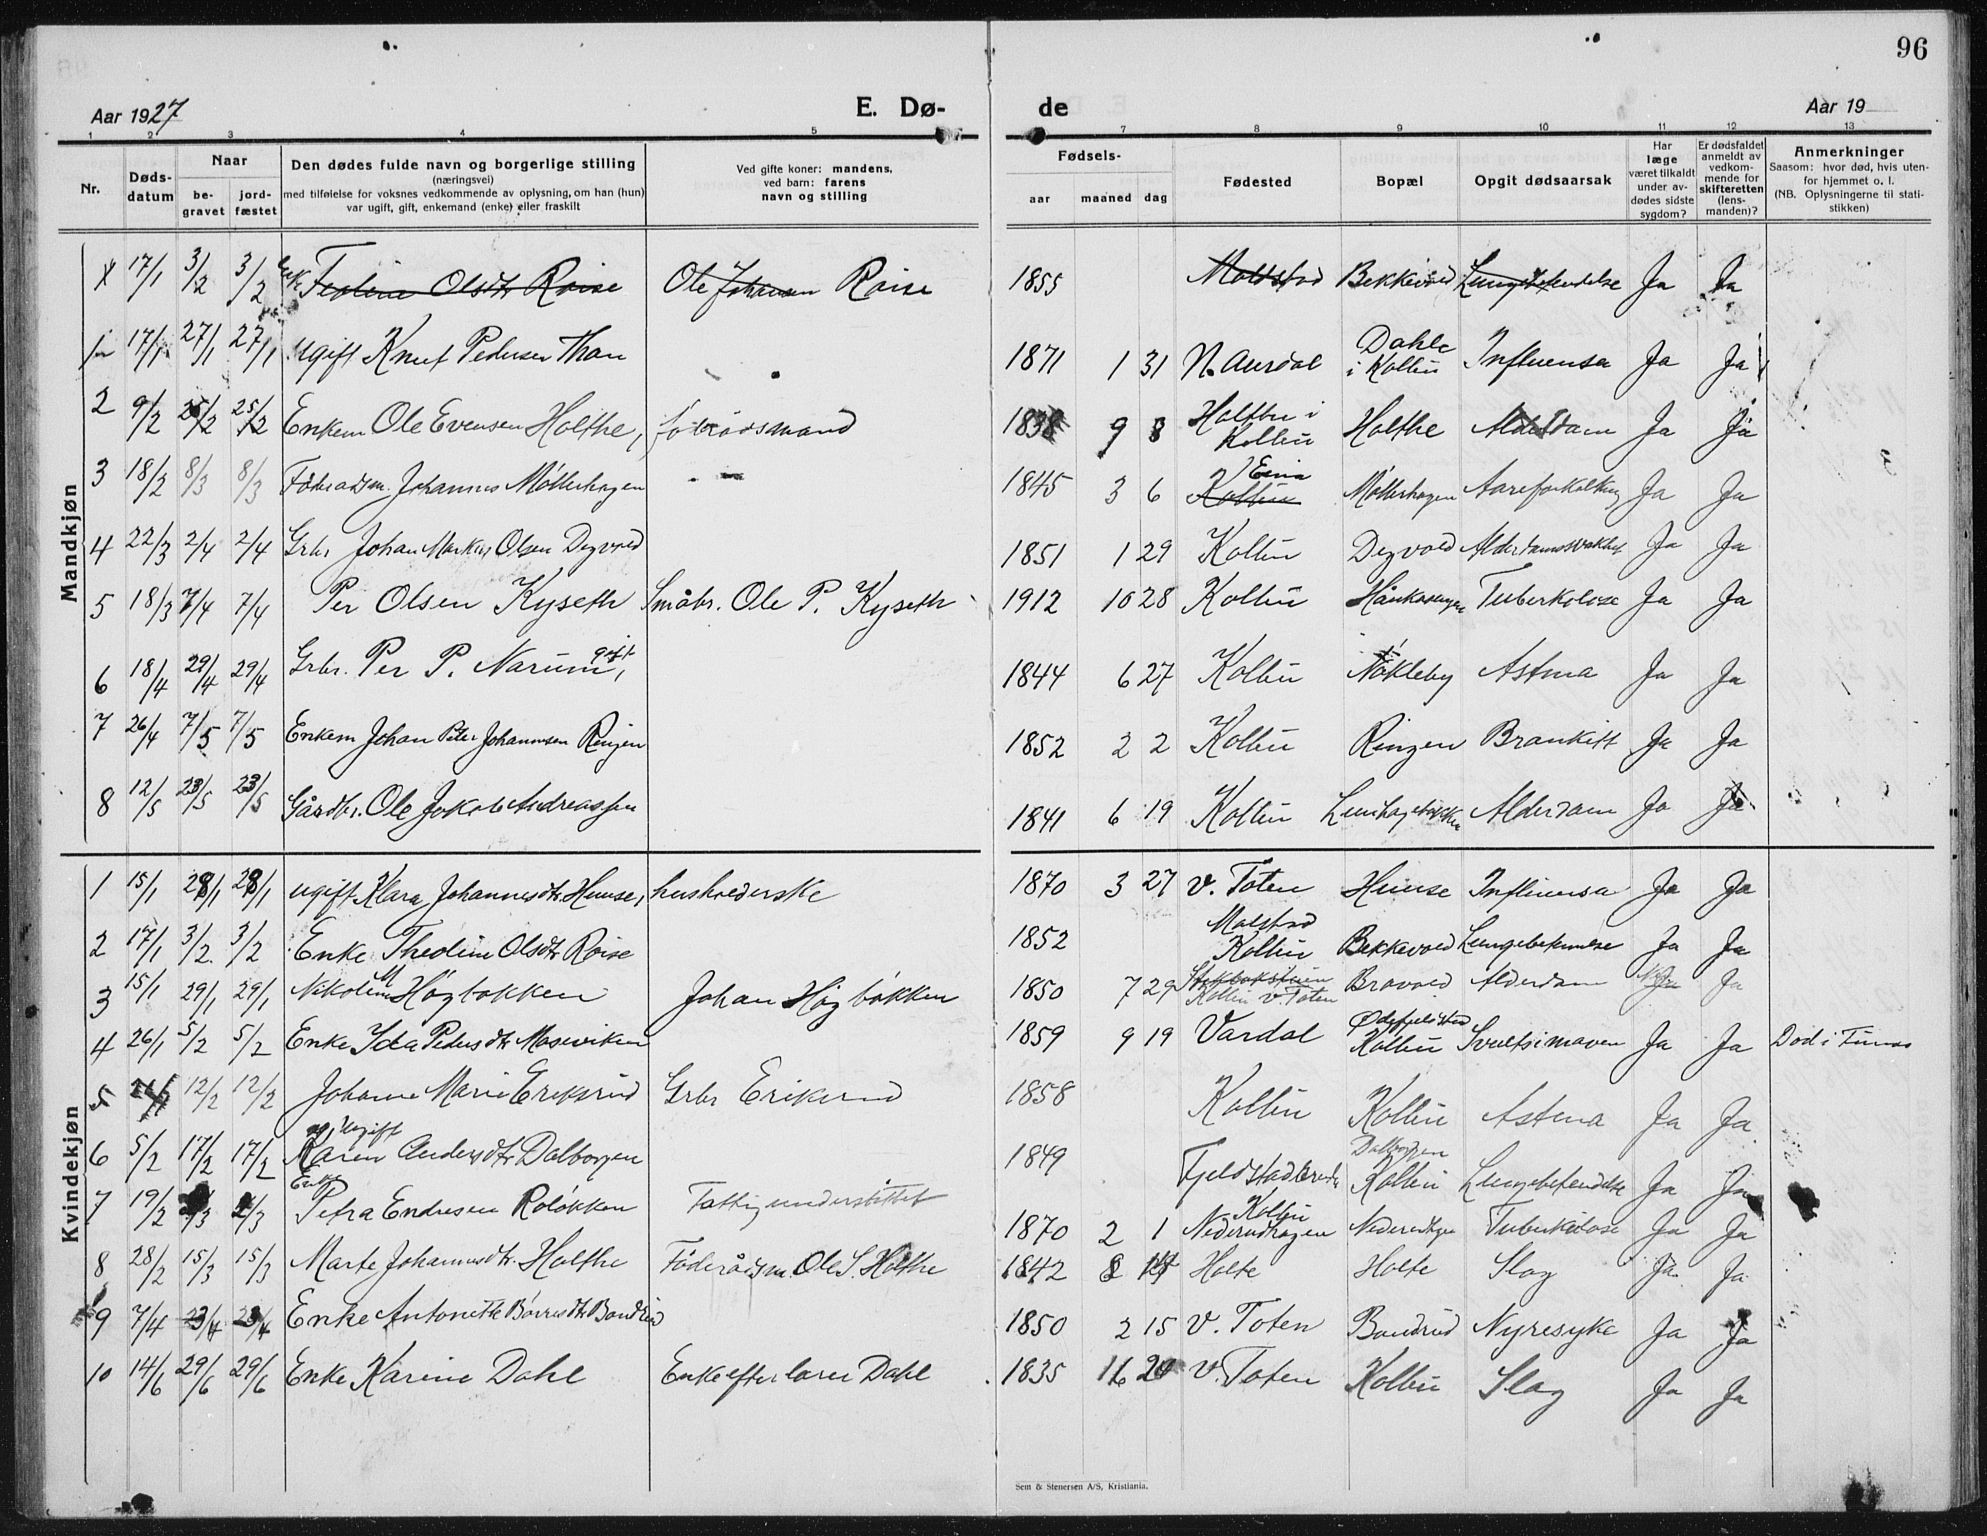 96
Aar 1927 E. Dø- de Aar 19
1 2 3 4 5 7 8 9 10 11 12 13
Nr. Døds-datum Naar be-gravet jord-fæstet Den dødes fulde navn og borgerlige stilling (næringsvei) med tilføielse for voksnes vedkommende av oplysning, om han (hun) var ugift, gift, enkemand (enke) eller fraskilt Ved gifte koner: mandens, ved barn: farens navn og stilling Fødsels- aar maaned dag Fødested Bopæl Opgit dødsaarsak Har læge været tilkaldt under av-dødes sidste sygdom? Er dødsfaldet anmeldt av vedkom-mende for skifteretten (lens-manden)? Anmerkninger Saasom: hvor død, hvis uten-for hjemmet o. l. (NB. Oplysningerne til stati-stikken)
Mandkjøn
17/1 3/2 3/2 Enke Teoline Olsdtr Røise Ole Johansen Røise 1855 Molstad Bekkevold Lungebetendelse Ja Ja
1 17/1 27/1 27/1 ugift Knut Pedersen Thon 1871 1 31 N. Aurdal Dahle i Kolbu Influensa Ja Ja
2 9/2 25/2 25/2 Enkem Ole Evensen Holthe, føderådsmand 1838 9 8 Holthe i Kolbu Holthe Alderdom Ja Ja
3 18/2 8/3 8/3 Føderadsm. Johannes Møllerhagen 1845 3 6 Kolbu Eina Møllerhagen Aareforkalkng Ja Ja
4 22/3 2/4 2/4 Grbr Johan Markus Olsen Degvold 1851 1 29 Kolbu Degvold Alderdomssvakhet Ja Ja
5 18/3 7/4 7/4 Per Olsen Kyseth Småbr. Ole P. Kyseth 1912 10 28 Kolbu Tuberkulose Ja Ja
6 18/4 29/4 29/4 Grbr. Per P. Narum, gift 1844 6 27 Kolbu Nøkleby Astma Ja Ja
7 26/4 7/5 7/5 Enkem Johan Peter Johannesen Ringen 1852 2 2 Kolbu Ringen Brankitt Ja Ja
8 12/5 23/5 23/5 Gårdbr. Ole Jakob Andreassen 1841 6 19 Kolbu Alderdom Ja Ja
Kvindekjøn
1 15/1 28/1 28/1 ugift Klara Johannesdtr. Hunse, husholderske 1870 3 27 V. Toten Hunse Influensa Ja Ja
2 17/1 3/2 3/2 Enke Theoline Olsdtr Røise 1852 Molstad Kolbu Bekkevold Lungebetennelse Ja Ja
3 15/1 29/1 29/1 Nikoline M Høgbakken Johan Høgbakken 1850 7 29 Kolbu V Toten Bravold Alderdom Ja
4 26/1 5/2 5/2 Enke Ida Pedersdtr Moseviken 1859 9 19 Vardal Ødefjelstad Kolbu Svulst i maven Ja Ja Død i
5 12/2 12/2 Johanne Marie Eriksrud Grbr Eriksrud 1858 Kolbu Kolbu Astma Ja Ja
6 5/2 17/2 17/2 ugift Karen Andersdtr Dalborgen 1849 Dalborgen Kolbu Lungebetendelse Ja Ja
7 19/2 2/3 Enke Petra Endresen Roløkken Fattigunderstøttet 1870 2 1 Kolbu Nederudhagen Nederudhgen Tuberkulose Ja Ja
8 28/2 15/3 15/3 Marte Johannesdtr. Holthe Føderådsm. Ole S. Holthe 1842 8 Holte Holte Slag Ja Ja
9 7/4 23/4 23/4 Enke Antonette Børresdtr Bondrud 1850 2 15 V. Toten Bondrud Nyresyke Ja Ja
10 14/6 29/6 29/6 Enke Karine Dahl Enke efter lærer Dahl 1835 11 20 V. Toten Kolbu Slag Ja Ja
Sem & Stenersen A/S, Kristiania.